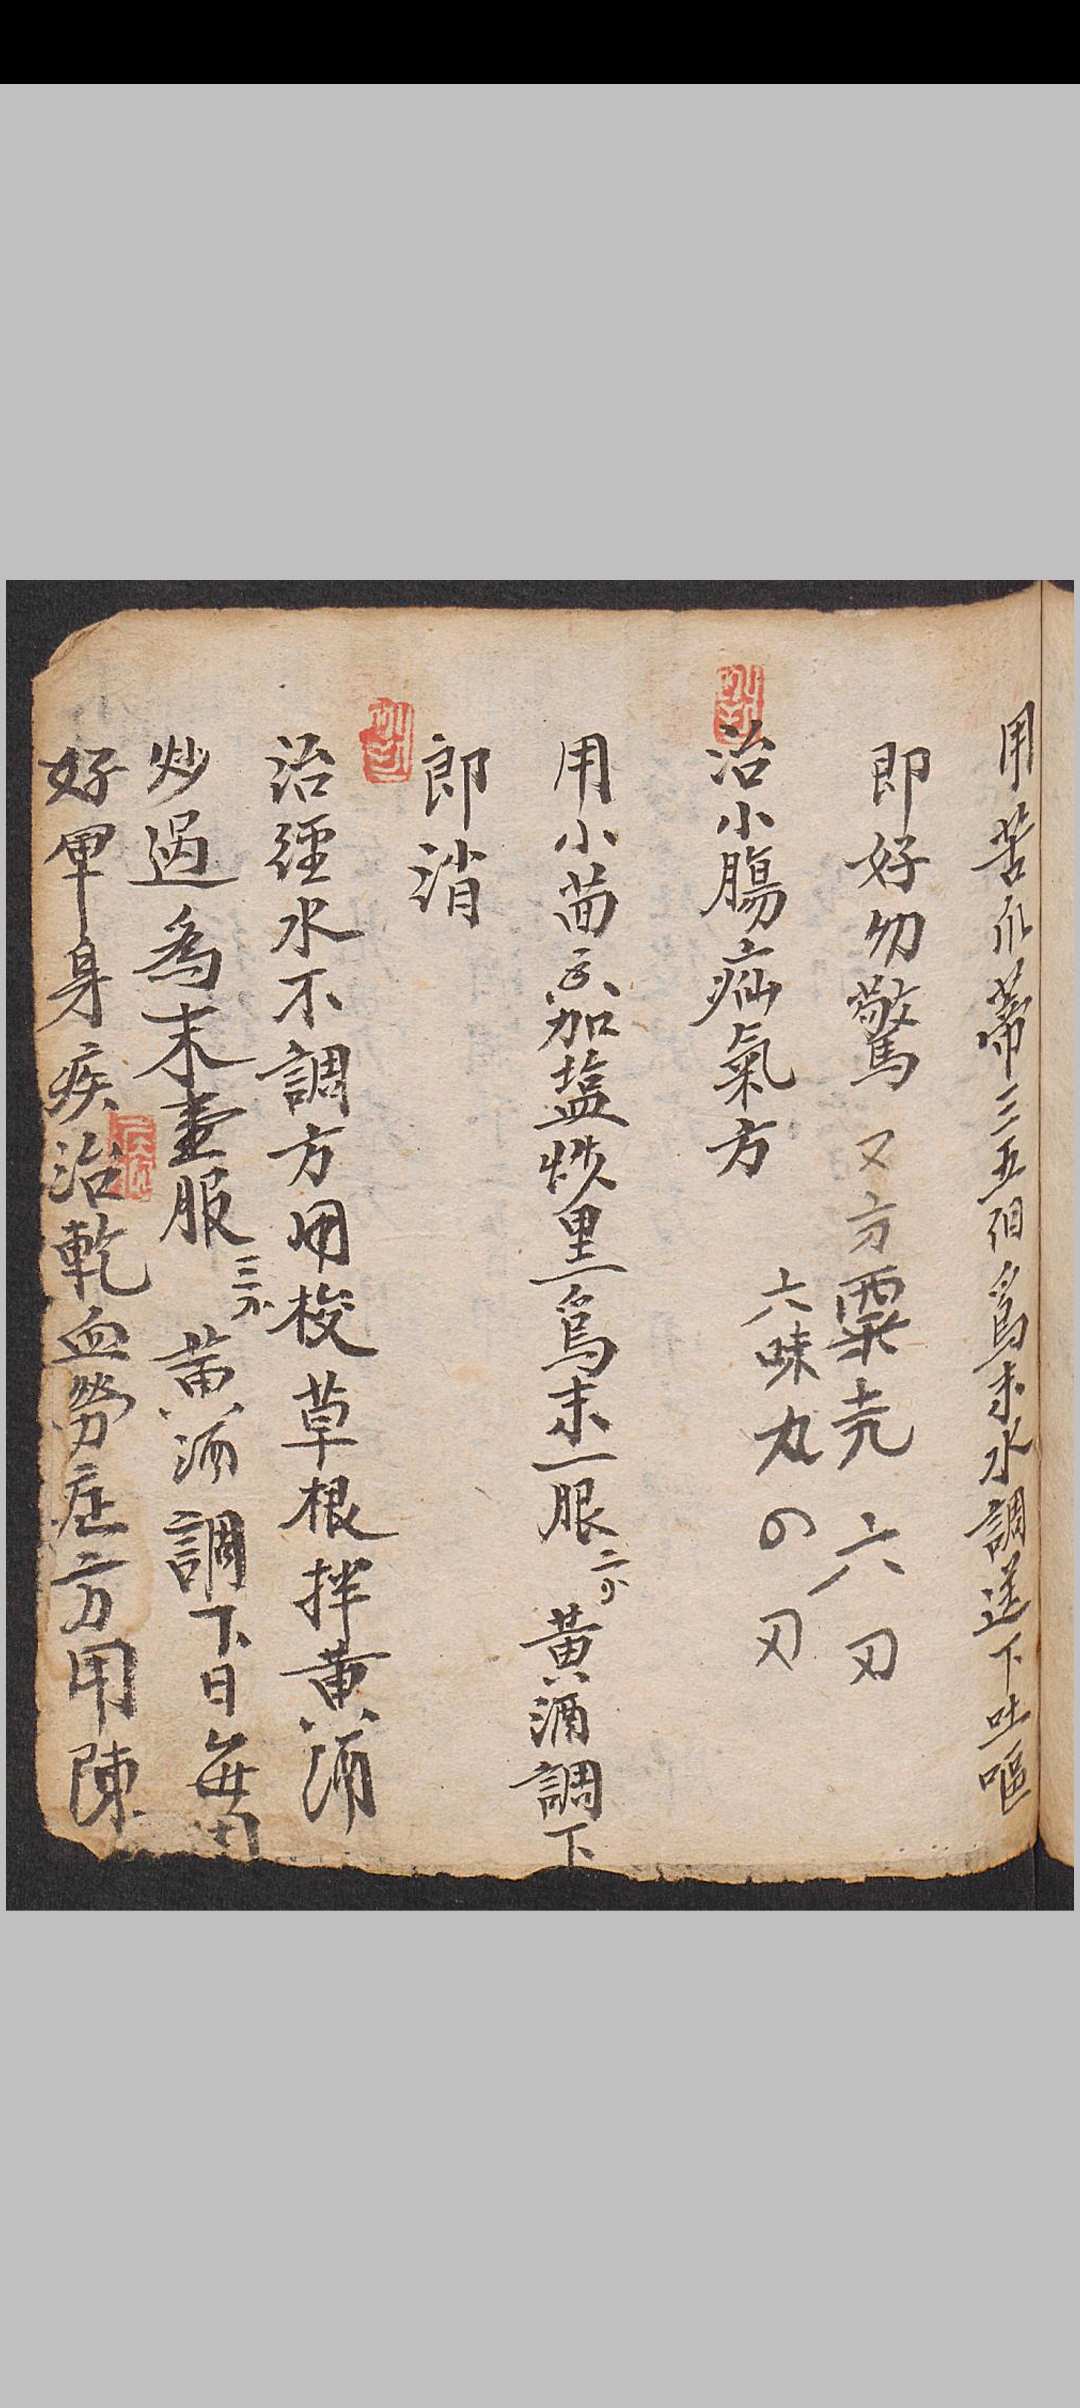 用苦瓜蒂三五個為末水調送下吐嘔
即好勿驚 又方粟壳 六刄
六味丸 の刄
治小膓疝氣方
用小茴 加塩炒黒為末一服二分 黃酒調下
即消
治經水不調方用梭草根拌黄酒
炒過為末壷服三分 黄酒調下日每用
好單身疾治乾血勞症方用陳